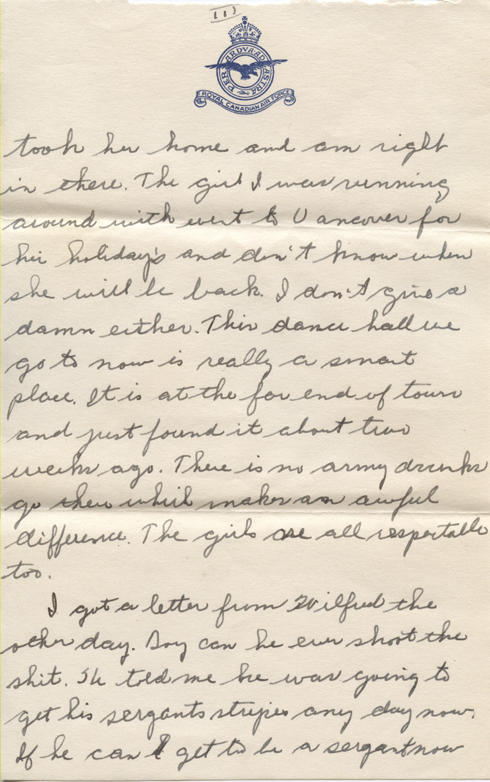 (11)
PER ARDVA AD ASTRA
ROYAL CANADIAN AIR FORCE
took her home and am right
in there. The girl I was running
around with went to Vancover for
her holiday's and don't know when
she will be back. I don't give a
damn either. This dance hall we
go to now is really a smart
place. It is at the far end of town
and just found it about two
weeks ago. There is no army drunks
go then which makes an awful
difference. The girls are all respertable
too.
I got a letter from Wilfred the
other day. Boy can he ever shoot the
shit. He told me he was going to
get his sergants stripes any day now.
If he can get to be a sergant now